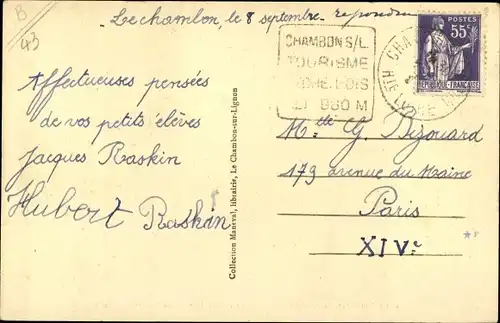 B
43
Le chambon, le 8 septembre
Affectueuses pensées
de vos petits élèves
Jacques Raskin
Hubert Raskin
Collection Maneval, librairie, Le Chambon-sur-Lignon
CHAMBON S/L
TOURISME
ALT 960 M
POSTES
55c
REPUBLIQUE FRANÇAISE
HTE LOIRE
Melle G. Bizouard
179 avenue du Maine
Paris
XIVe